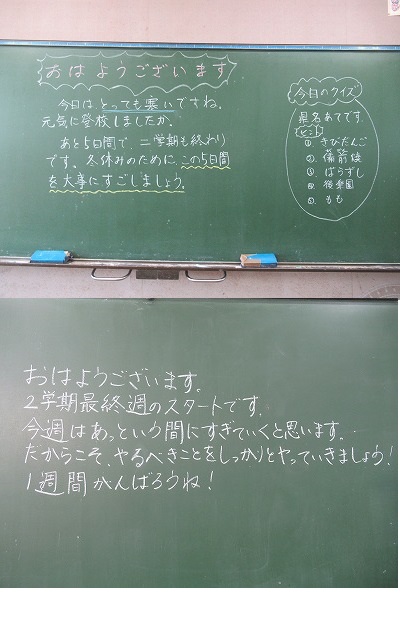 おはようございます
今日はとっても寒いですね。
元気に登校しましたか。
あと5日間で、二学期も終わり
です。冬休みのために、この5日間
を大事にすごしましょう。
今日のクイズ
県名あてです。
ヒント
① きびだんご
② 備前焼
③ ばらずし
④ 後楽園
⑤ もも
おはようございます。
2学期最終週のスタートです。
今週はあっという間にすぎていくと思います。
だからこそ、やるべきことをしっかりとやっていきましょう!
1週間がんばろうね!